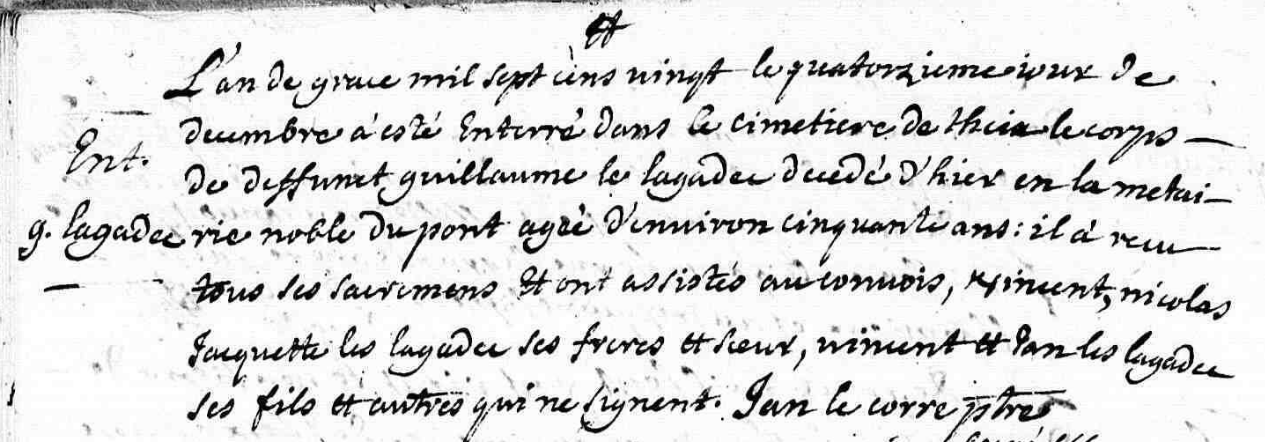 L'an de grace mil sept cens vingt le quatorzieme iour de
decembre a esté Enterré dans le cimetiere de theix le corps
Ent.
de deffunct guillaume le lagadec decedé d'hier en la metai-
g. lagadec
rie noble du pont ageé d'enuiron cinquante ans: il á receu
tous ses sacremens Et ont assistés au conuois, vincent, nicolas
Jacquette les lagadec ses freres et sœur, vincent et Jan les lagadec
ses fils et autres qui ne signent. Jan le corre ptre